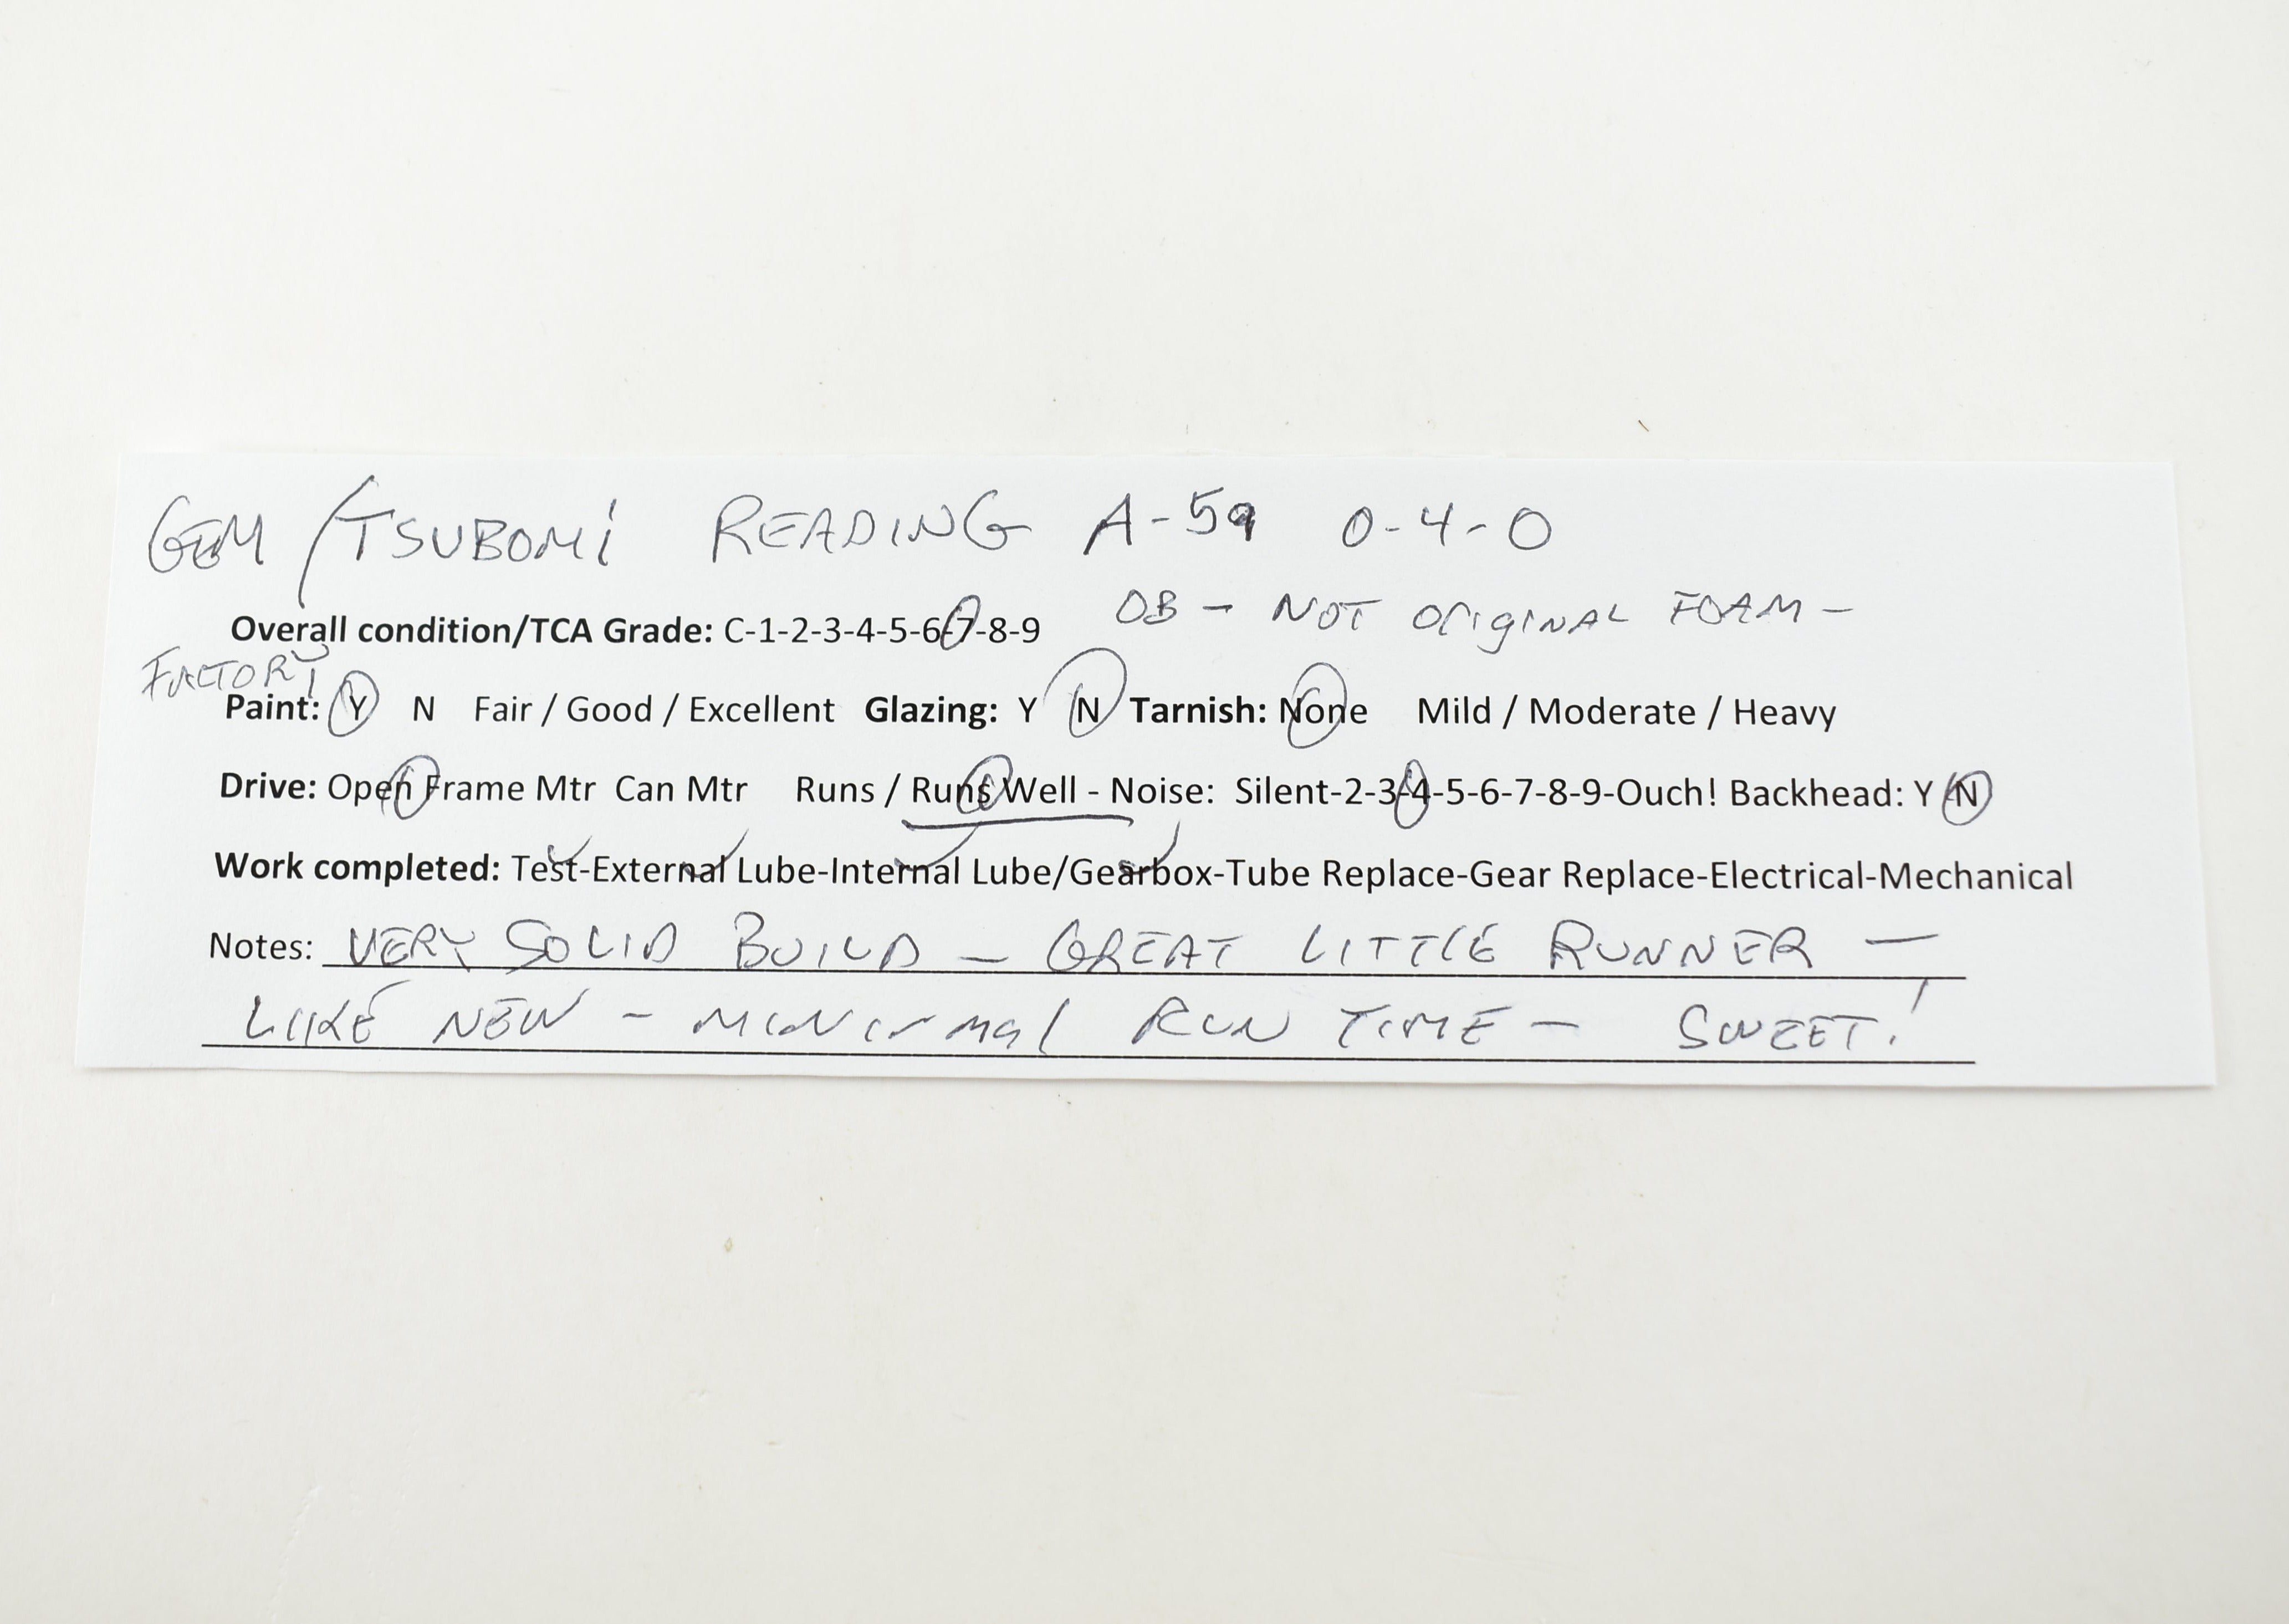 GEM/TSUBOMi READING A-59 0-4-0
OB - NOT ORiGiNAL FOAM -
Overall condition/TCA Grade: C-1-2-3-4-5-6-7-8-9
FACTORY
Paint: Y N Fair / Good / Excellent Glazing: Y N Tarnish: None Mild / Moderate / Heavy
Drive: Open Frame Mtr Can Mtr Runs / Runs Well - Noise: Silent-2-3-4-5-6-7-8-9-Ouch! Backhead: Y N
Work completed: Test-External Lube-Internal Lube/Gearbox-Tube Replace-Gear Replace-Electrical-Mechanical
Notes: VERY SOLID BUILD - GREAT LITTLE RUNNER -
LIKE NEW - MINIMAL RUN TIME - SWEET!